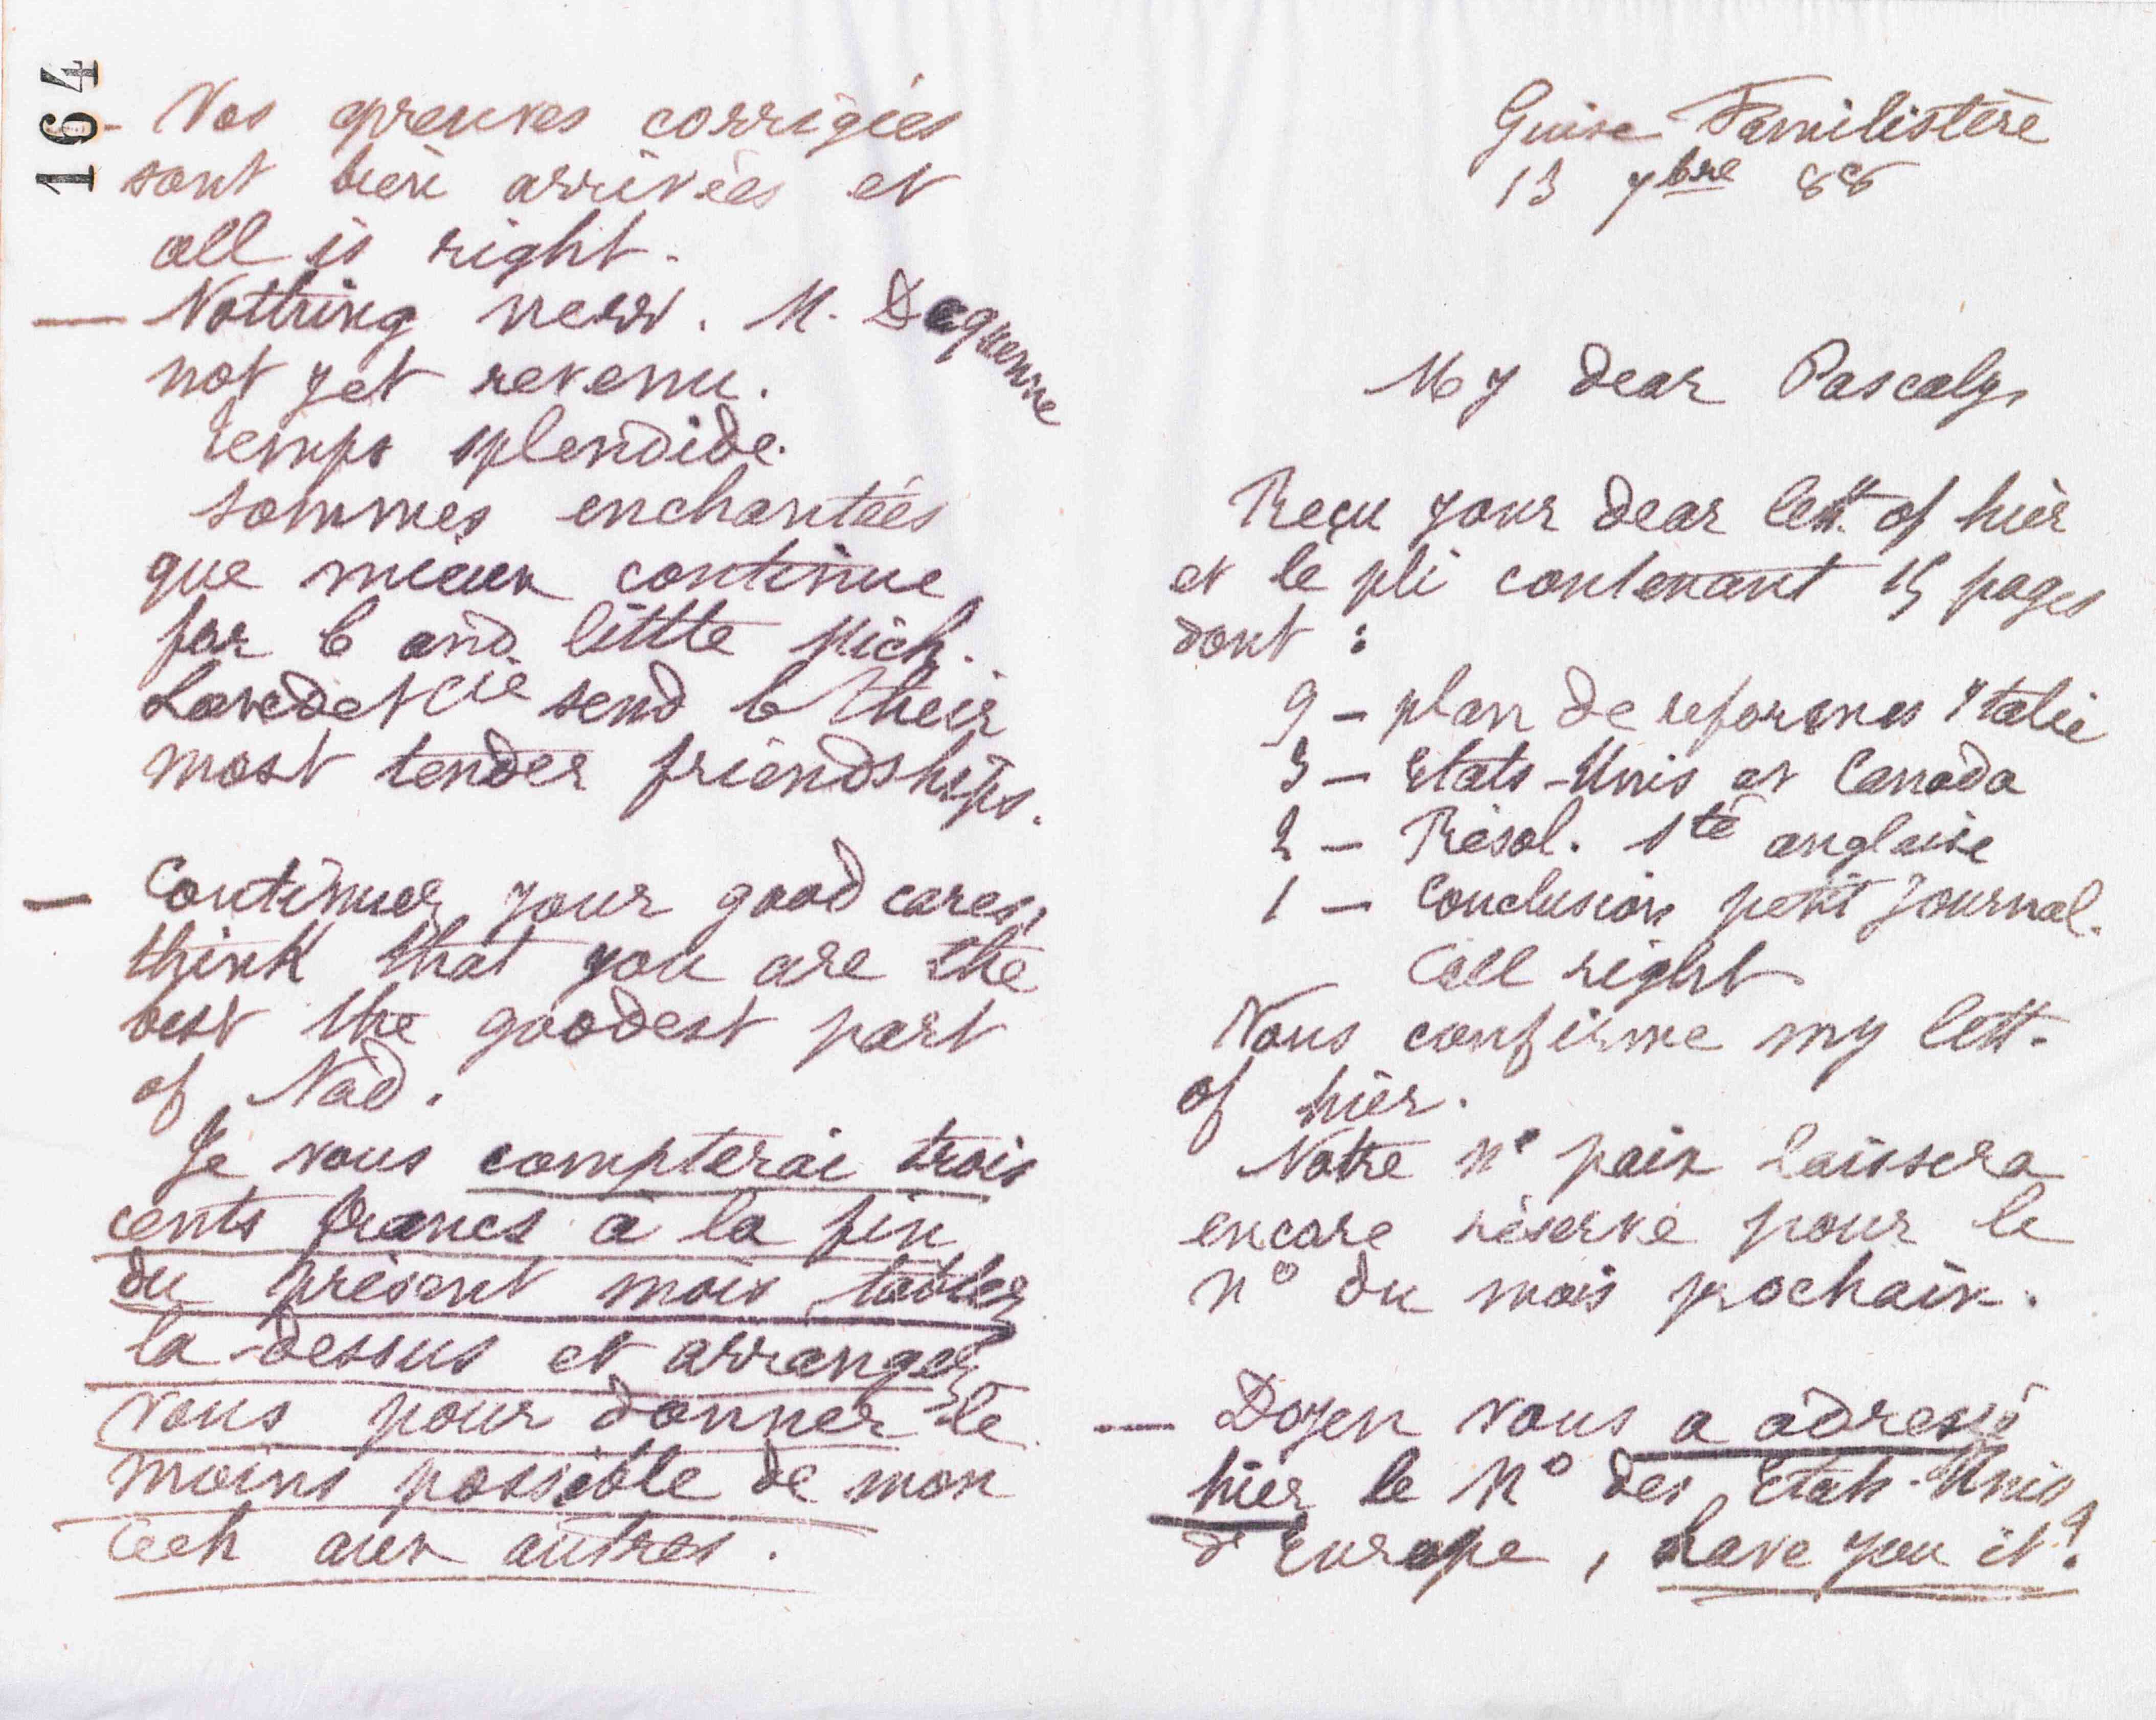 Guise Familistère
13 7bre 88
My dear Pascaly,
Reçu your dear lett. of hier
et le pli contenant 15 pages
dont :
9 – plan de reformes Italie
3 – Etats-Unis et Canada
2 – Résol. sté anglaise
1 – Conclusion petit journal.
all right
Vous confirme my lett.
of hier.
Notre n° paix laissera
encore réserve pour le
n° du mois prochain.
— Doyen vous a adressé
hier le N° des Etats-Unis
d'Europe, have you it ?
164
- Vos épreuves corrigées
sont bien arrivées et
all is right.
— Nothing new. M. Dequenne
not yet revenu.
temps splendide.
sommes enchantées
que mieux continue
for b and little Mich.
et Cie send b their
most tender friendships.
— Continuer your good cares,
think that you are the
best the goodest part
of Nad.
Je vous compterai trois
cents francs à la fin
du présent mois, tablez
la-dessus et arrangez
vous pour donner le
moins possible de mon
aux autres.